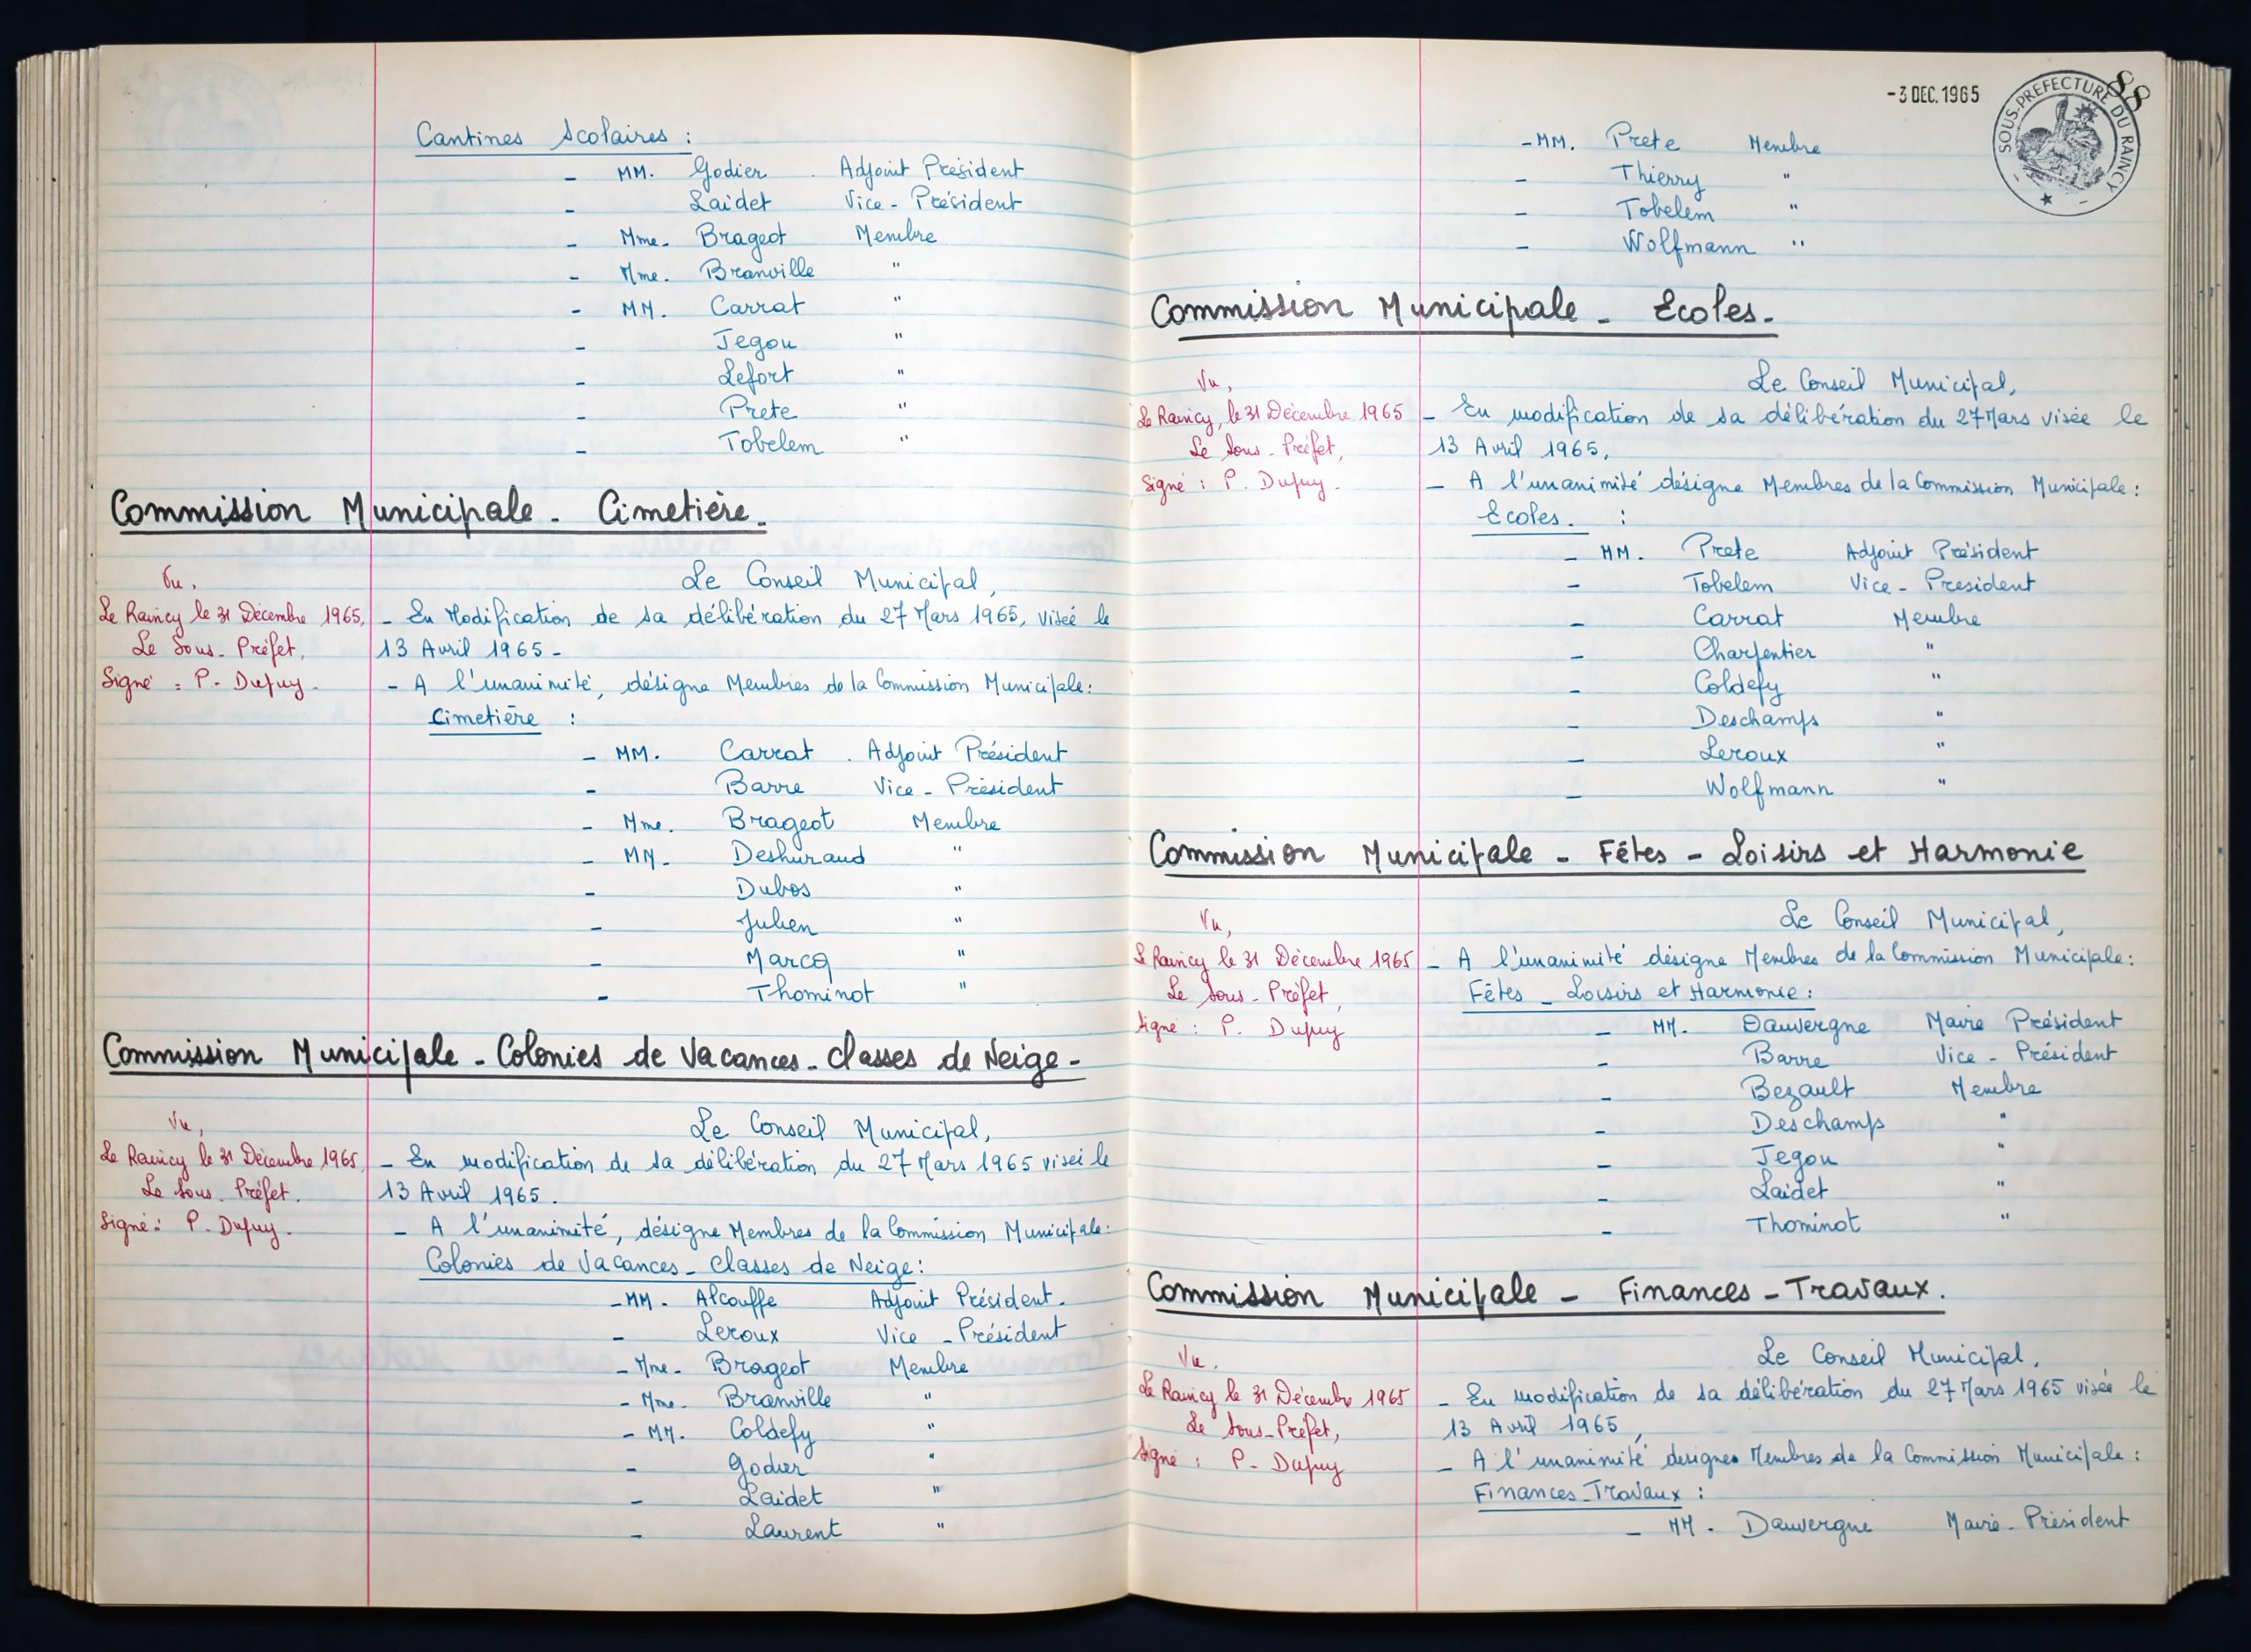 Cantines Scolaires :
- MM. Godier . Adjoint Président
- Laidet Vice - Président
- Mme. Brageot Membre
- Mme. Branville "
- MM. Carrat "
- Jegou "
- Lefort "
- Prete "
- Tobelem "
Commission Municipale - Cimetière.
Vu,
Le Raincy le 31 Décembre 1965,
Le Sous-Préfet,
Signé : P. Dupuy.
Le Conseil Municipal,
- En Modification de sa délibération du 27 Mars 1965, visée le
13 Avril 1965 -
- A l'unanimité, désigne Membres de la Commission Municipale :
Cimetière :
- MM. Carrat . Adjoint Président
- Barre Vice - Président
- Mme. Brageot Membre
- MM. Deshuraud "
- Dubos "
- Julien "
- Marcq "
- Thominot "
Commission Municipale - Colonies de Vacances - Classes de Neige -
Vu,
Le Raincy le 31 Décembre 1965,
Le Sous-Préfet.
Signé : P. Dupuy.
Le Conseil Municipal,
- En modification de sa délibération du 27 Mars 1965 visei le
13 Avril 1965.
- A l'unanimité, désigne Membres de la Commission Municipale :
Colonies de Vacances - Classes de Neige :
- MM. Alcouffe Adjoint Président.
- Leroux Vice - Président
- Mme. Brageot Membre
- Mme. Branville "
- MM. Coldefy "
- Godier "
- Laidet "
- Laurent "
- 3 DEC. 1965
88
SOUS-PREFECTURE DU RAINCY
- MM. Prete Membre
- Thierry "
- Tobelem "
- Wolfmann "
Commission Municipale - Ecoles.
Vu,
Le Raincy, le 31 Décembre 1965
Le Sous-Préfet,
Signé : P. Dupuy.
Le Conseil Municipal,
- En modification de sa délibération du 27 Mars visée le
13 Avril 1965,
- A l'unanimité désigne Membres de la Commission Municipale :
Ecoles. :
- MM. Prete Adjoint Président
- Tobelem Vice - President
- Carrat Membre
- Charpentier "
- Coldefy "
- Deschamps "
- Leroux "
- Wolfmann "
Commission Municipale - Fêtes - Loisirs et Harmonie
Vu,
Le Raincy le 31 Décembre 1965
Le Sous-Préfet,
Signé : P. Dupuy
Le Conseil Municipal,
- A l'unanimité désigne Membres de la Commission Municipale :
Fêtes - Loisirs et Harmonie :
- MM. Dauvergne Maire Président
- Barre Vice - Président
- Bezault Membre
- Deschamps "
- Jegou "
- Laidet "
- Thominot "
Commission Municipale - Finances - Travaux.
Vu.
Le Raincy le 31 Décembre 1965
Le Sous-Préfet,
Signé : P. Dupuy
Le Conseil Municipal.
- En modification de sa délibération du 27 Mars 1965 visée le
13 Avril 1965,
- A l'unanimité designe Membres de la Commission Municipale :
Finances-Travaux :
- MM. Dauvergne Maire - Président